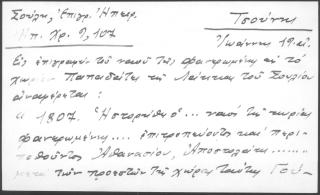 Σούλη, Ἐπιγρ. Ἠπειρ.
Ἠπ. Χρ. 9, 107
Τσούνης
Ἰωάννης 19 αἰ.
Εἰς ἐπιγραφὴν τοῦ ναοῦ τῆς Φανερωμένης εἰς τὸ
χωρίον Παπαδάτες τῆς Λάκκας τοῦ Σουλίου
ἀναφέρεται:
"1807. Ἱστορήθη ὁ... ναὸς τῆς κυρίας
φανερωμένης.... ἐπιτροπεύοντος καὶ περι-
ποθοῦντος Ἀθανασίου, Ἀποστολάτες.......
μετὰ τῶν προεστῶν τῆς χώρας ταύτης Τσού-